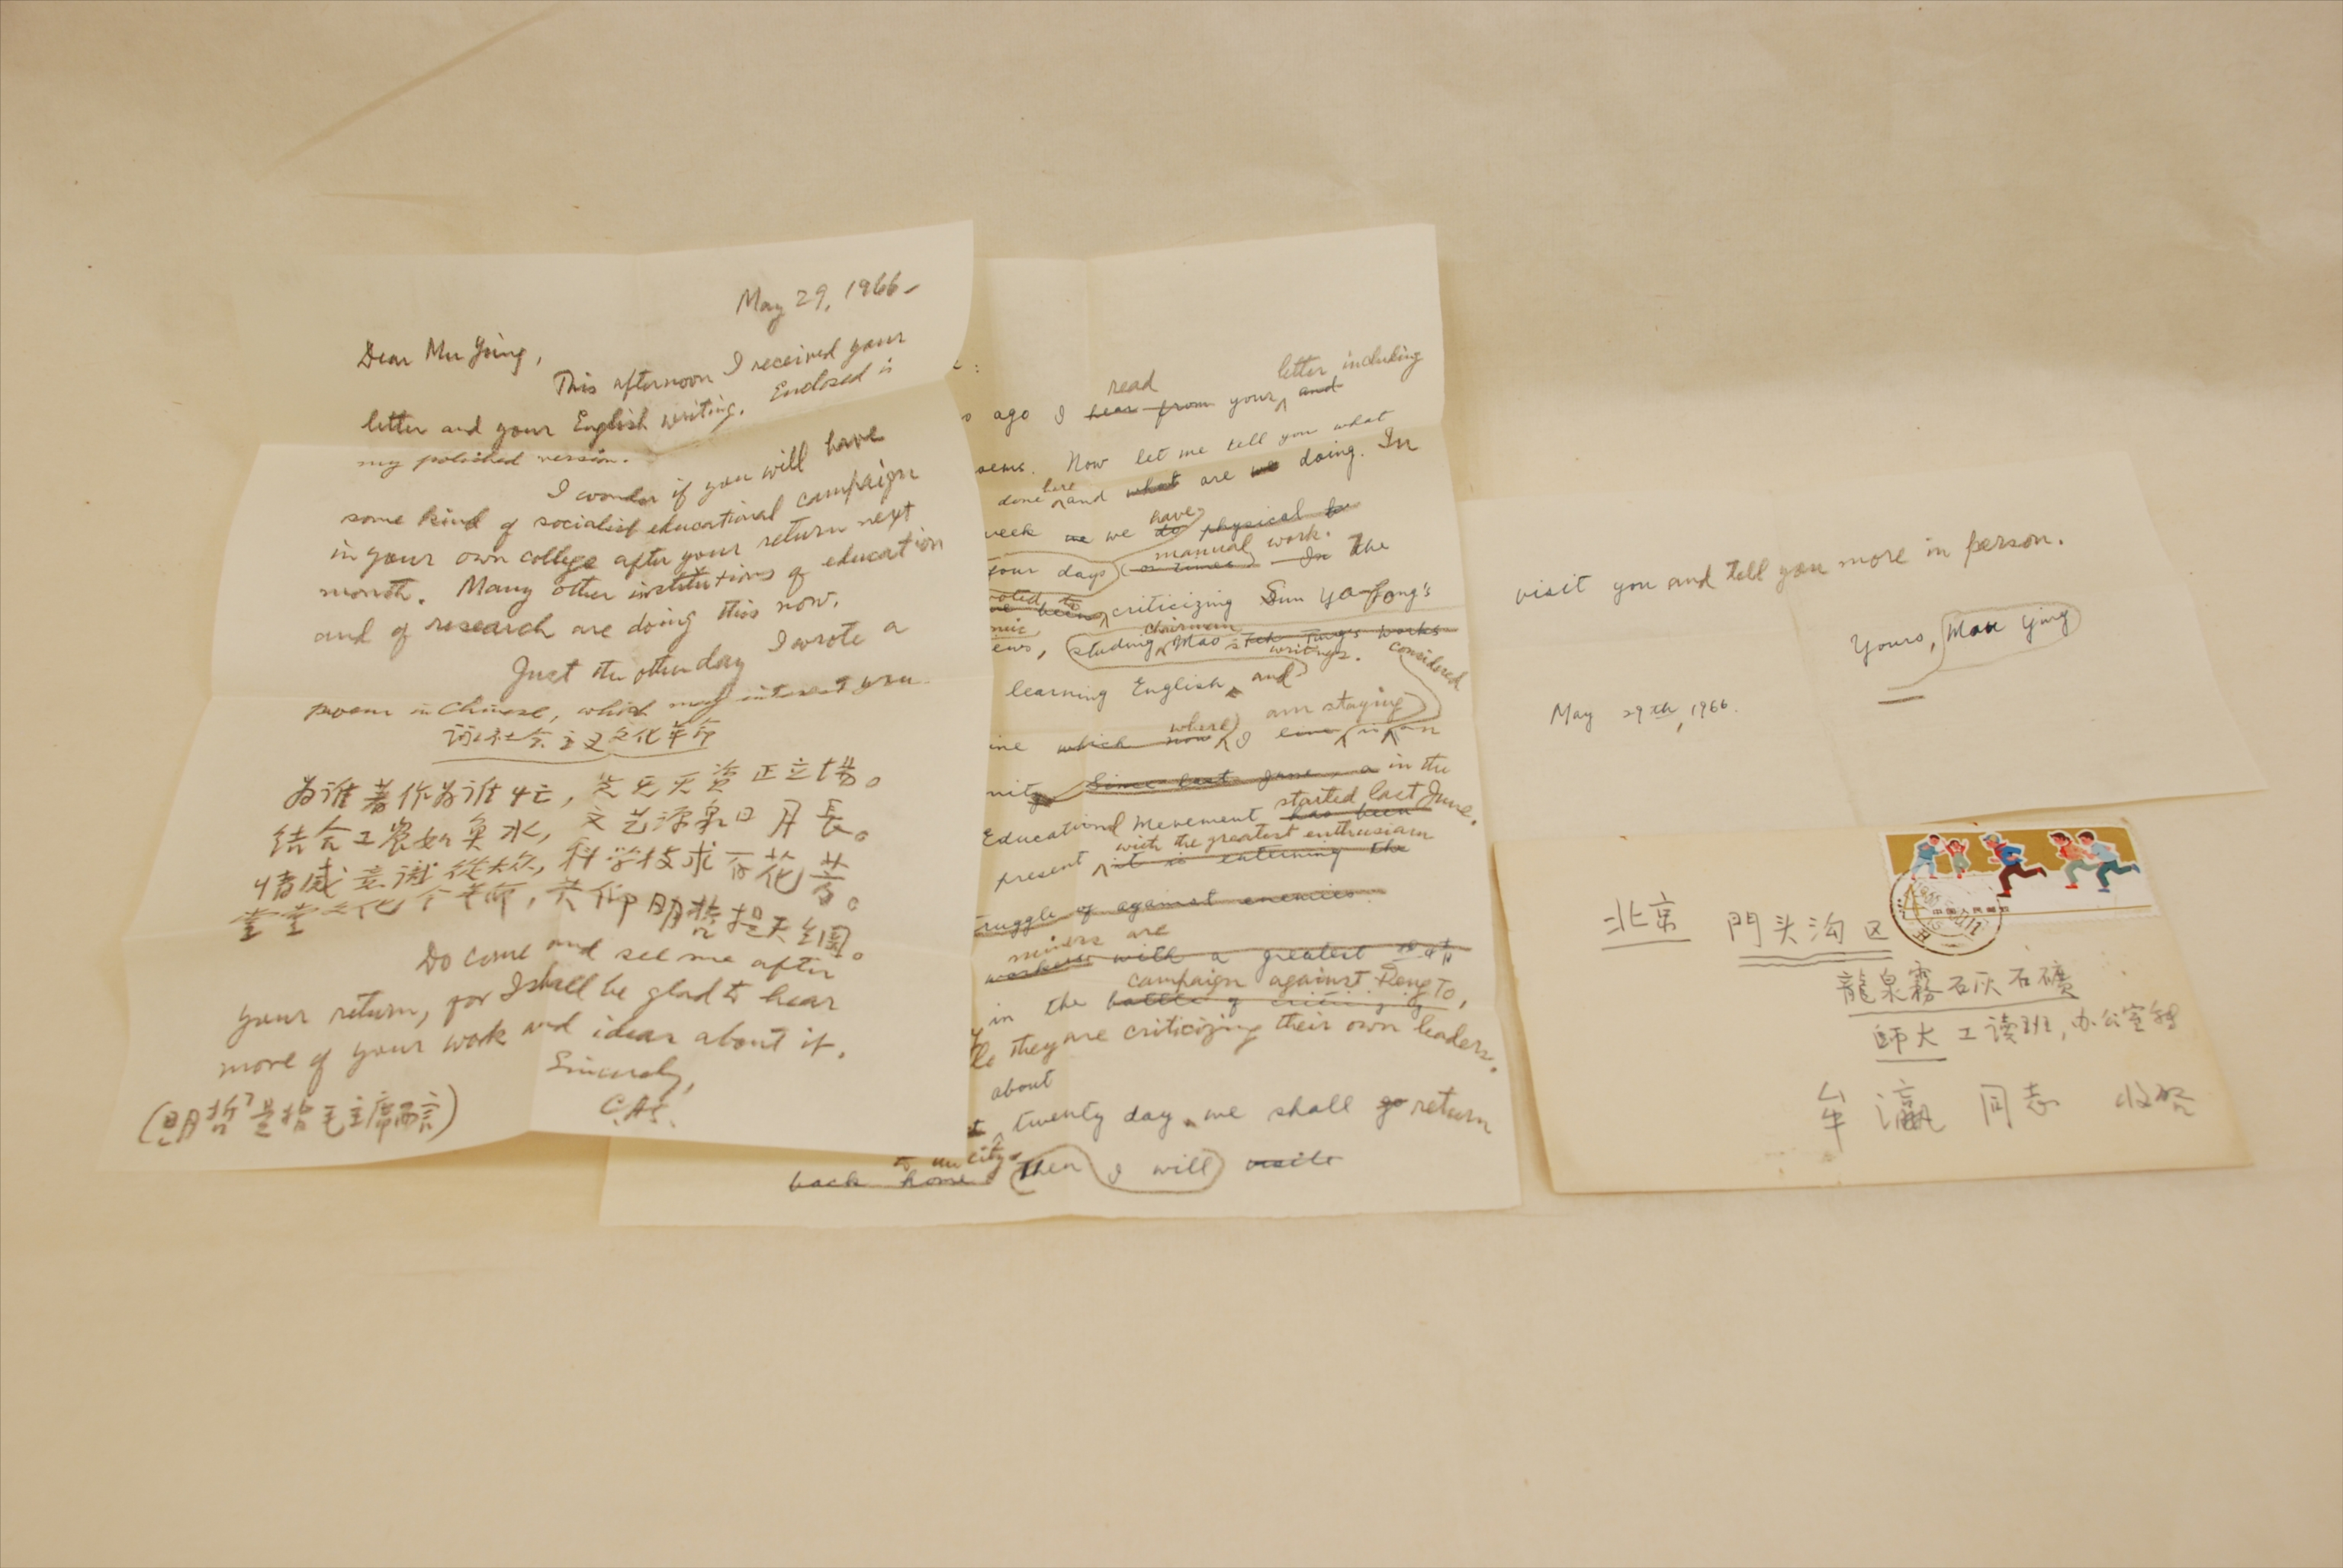 May 29, 1966-
Dear Mu Ying,
This afternoon I received your
letter and your English writing. Enclosed is
my polished version.
I wonder if you will have
some kind of socialist educational campaign
in your own college after your return next
month. Many other institutions of education
and of research are doing this now.
Just the other day I wrote a
poem in Chinese, which may interest you.
社会主义文化革命
为谁著作为谁忙, 兴无灭资正立场。
结合工农如鱼水, 文艺源泉日月長。
情感意识從大众, 科学技求百花芳。
堂堂文化个革命, 共仰明哲提天纲。
Do come and see me after
your return, for I shall be glad to hear
more of your work and ideas about it.
Sincerely,
(明哲是指毛主席而言)
:
read letter including
ago I hear from your and
oems. Now let me tell you what
here
done and what are we doing. In
have
week we we do physical
manual work.
four days or times In The
voted to
been criticizing Sun Ya-fong's
chairman
ews, studing Mao Tse Tung's works
writings. considered
learning English and
where am staying
ine which now I live in an
nity Since last June, a in the
started last June.
Educational Movement has been
with the greatest enthusiasm
present it is entering the
ruggle of against enemies.
miners are
workers with a greatest
campaign against Teng To,
in the battle of criticizing
le they are criticizing their own leaders.
about
twenty day we shall go return
to the city.
back home then I will visite
visit you and tell you more in person.
Yours, Mou Ying
May 29th, 1966.
中国人民邮政
北京 門头沟区
龍泉霧石灰石礦
師大工读班, 办公室转
牟瀛 同志 收啓